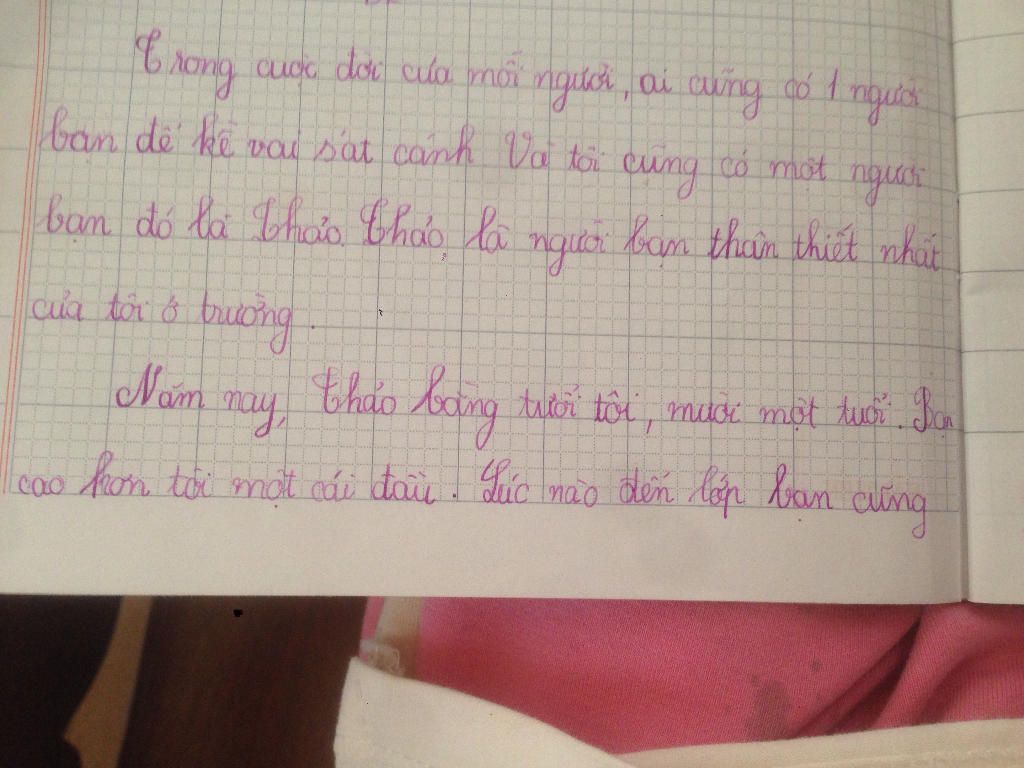 Trong cuộc đời của mỗi người, ai cũng có 1 người
bạn để kề vai sát cánh Và tôi cũng có một người
bạn đó là Thảo. Thảo là người bạn thân thiết nhất
của tôi ở trường.
Năm nay, Thảo bằng tuổi tôi, mười một tuổi. Bạn
cao hơn tôi một cái đầu. Lúc nào đến lớp bạn cũng